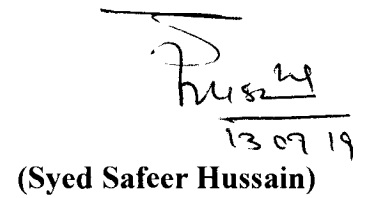 13 07 19
(Syed Safeer Hussain)